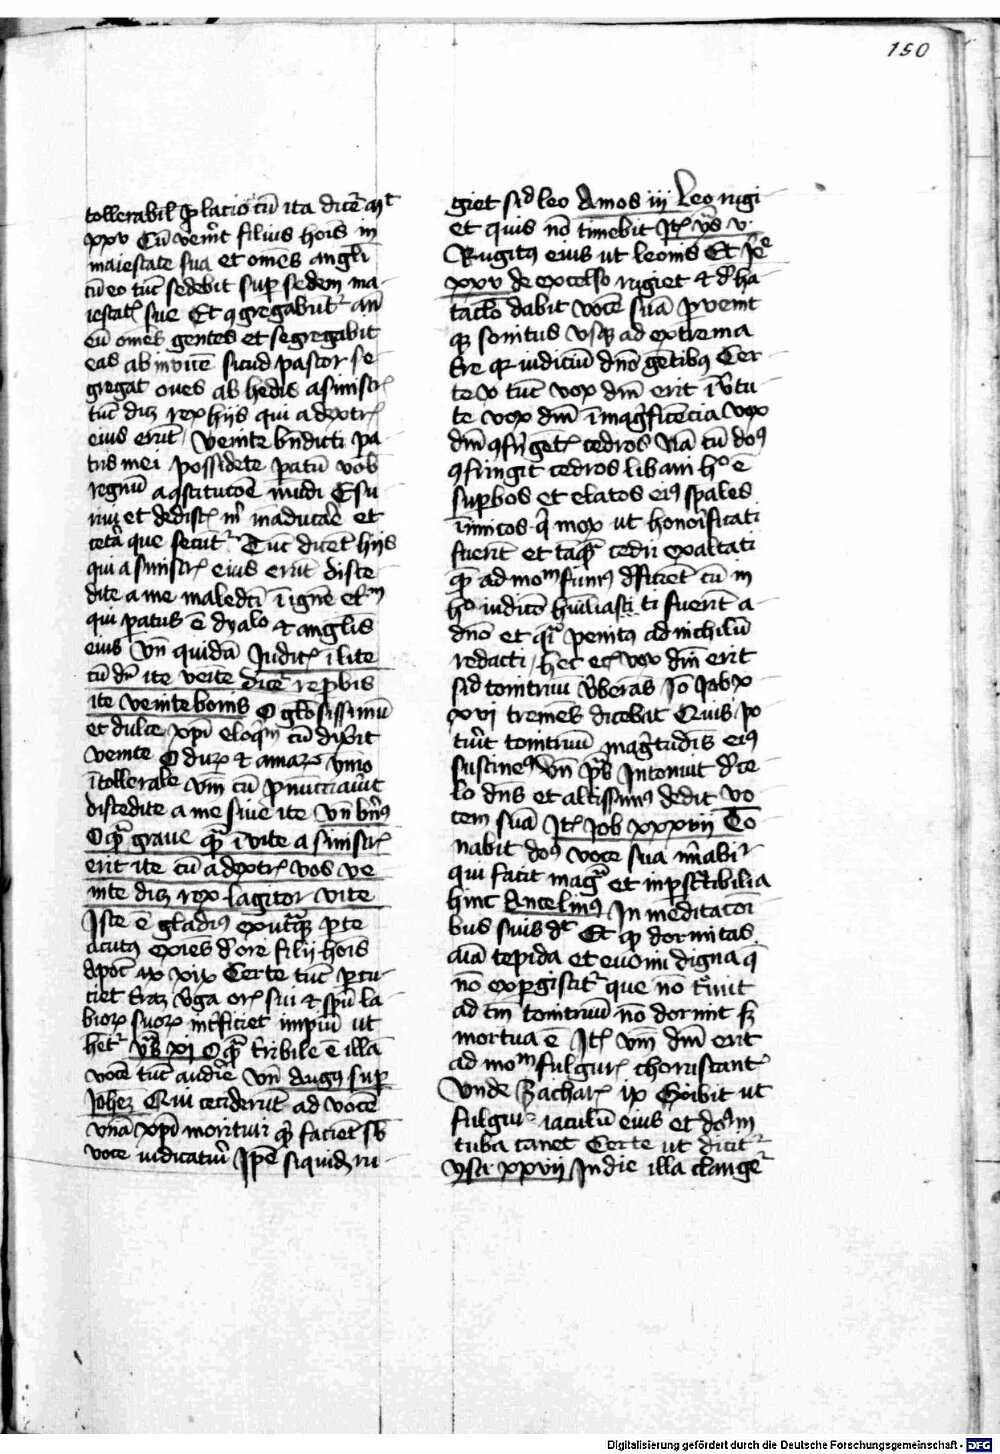 150
tollerabil placio cu ita dicet mt
xxv Cu venit filius hois in
maiestate sua et omes angli
cu eo tuc sedebit sup sedem ma-
iestat sue Et ꝯgregabut an
eu omes gentes et segregabit
eas ab invice sicud pastor se-
gregat oves ab hedis a sinistr
tuc diꝫ rex hijs qui a dextr
eius erut venite bndicti pa-
tris mei possidete patu vob
regnu a ꝯstitucoe mudi Esu-
rivi et dedist m maducare et
cetera que secut Tuc dicet hijs
qui a sinistr eius erut disce
dite a me maledci i igne etm
qui patus e dyalo et anglis
eius vn quida Judict ilite
cu dr ite venite dicet repbis
ite venite bonis O glosissimu
et dulce xpi eloqm cu dixit
venite O duꝝ et amaꝝ ymo
itollerabile vm cu pnucciavit
discedite a me sive ite vn bnꝰ
O qua grave qua i vite a sinistr
erit ite cu a dextr vos ve-
nite diꝫ rex largitor vite
Iste e gladiꝰ ex utaqꝫ pte
acutꝰ exies de ore filij hois
apoc ix xix Certe tuc pcu-
ciet terra virga oris sui et spu la-
bioꝝ suoꝝ interficiet impiu ut
het ysa xi O qua tribile e illa
voce tuc audire vn augꝰ sup
Johez Qui ceciderut ad voce
una xpi morituri quid faciet sub
voce iudicaturi Ipse siquidem ru-
giet sicud leo Amos iij Leo rugi
et quis no timebit It ys v
Rugitꝰ eius ut leonis Et Jere
xxv de excelso rugiet et de ha
taclo dabit voce sua pvenit
qꝫ sonitus usqꝫ ad extrema
tre qr iudiciu dno getibꝰ Cer-
te vo tuc vox dni erit i virtu-
te vox dni i magnificecia vox
dni ꝯfringet cedros Na cu dos
ꝯfringit cedros libani hoc e
supbos et elatos eiꝰ spales
inimicos qui mox ut honorificati
fuerit et taqua cedri exaltati
qua ad mom fumꝰ deficiet cu in
hoc iudicio huiliati fuerit a
dno et quasi penitꝰ ad nichilu
redacti hec est vox dni erit
sicud tonitruu verberas Jo Job x
xvi tremes dicebat Quis po
tuit tonitruu magtudis eiꝰ
sustine vn ps Intonuit de ce
lo dns et altissimꝰ dedit vo
cem sua It Job xxxvij To
nabit dos voce sua mirabir
qui facit magna et inpscrutibilia
hinc Ancelmꝰ In meditacoi
bus suis dt Et quid dormitas
aia tepida et evomi digna q
no expgiscit que no timit
ad tm tonitruu no dormit sꝫ
mortua e It vm dni erit
ad mom fulgur choruscant
Unde Zachar ix Exibit ut
fulgur iaculu eius et dos in
tuba canet Certe ut dicit
ysa xxvij In die illa clanget
Digitalisierung gefördert durch die Deutsche Forschungsgemeinschaft - DFG